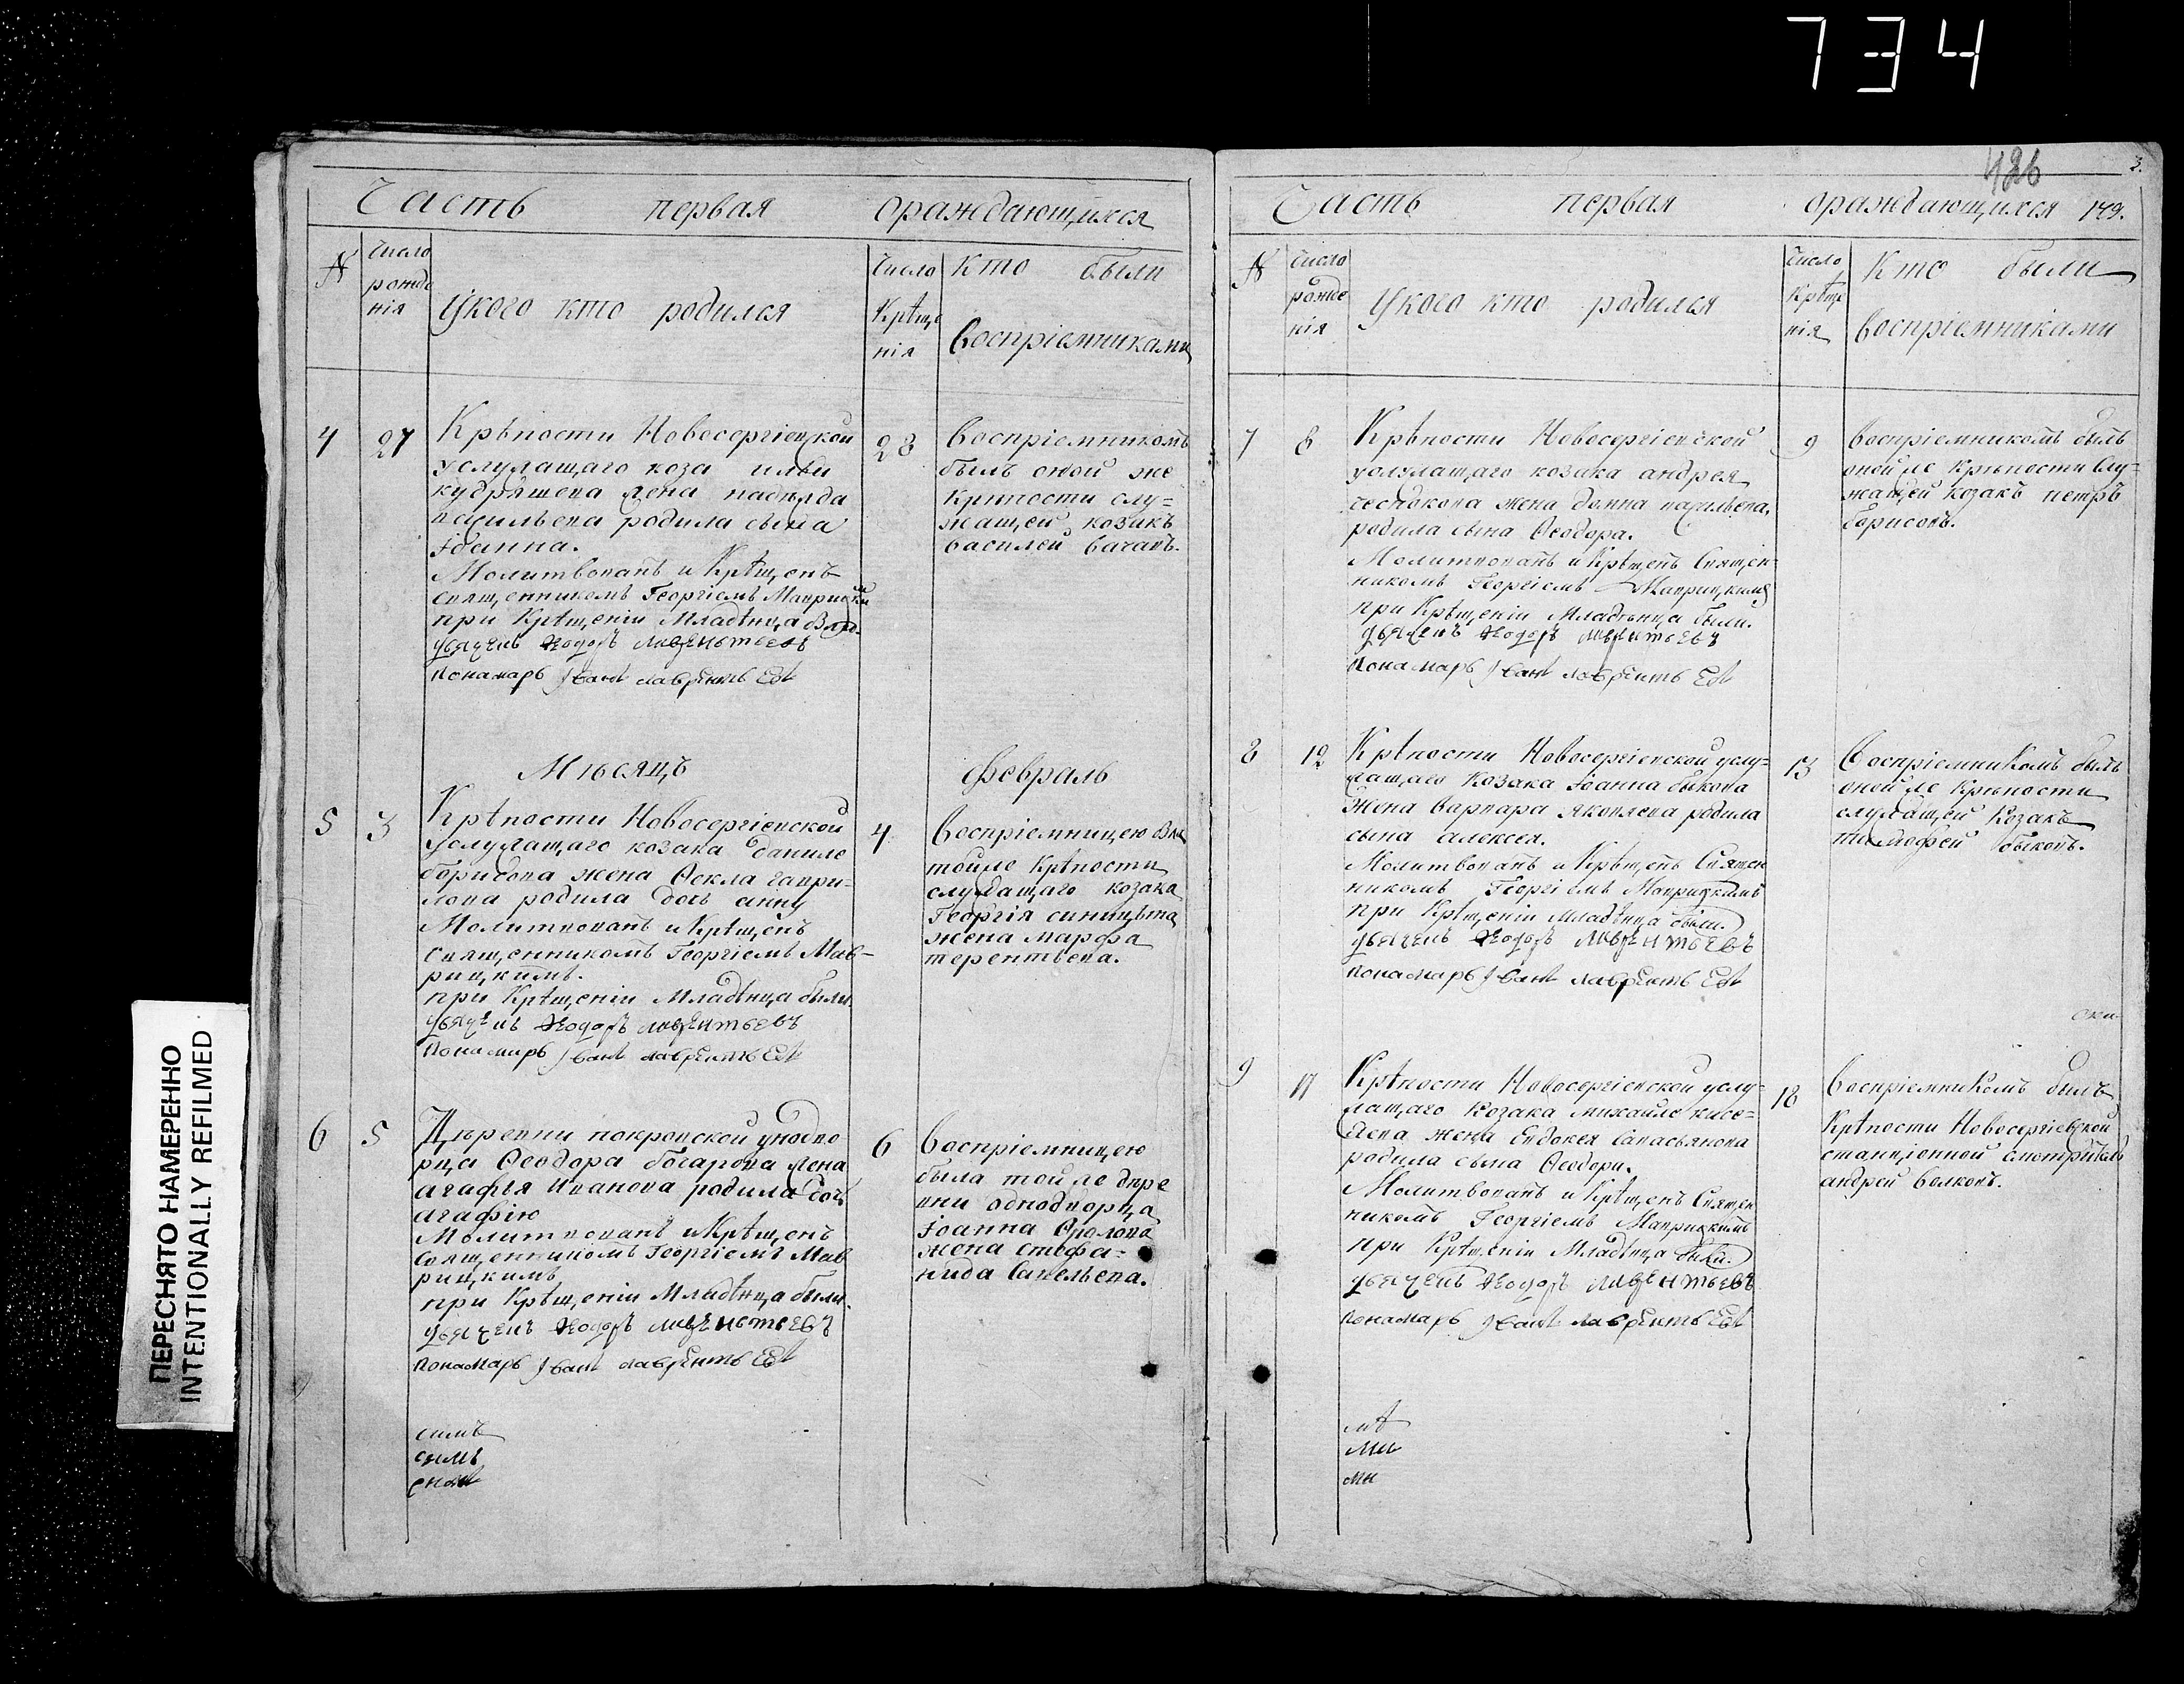 734
ПЕРЕСНЯТО НАМЕРЕННО
INTENTIONALLY REFILMED
Часть первая ораждающихся
N
число рожде нія
Укого кто родился
число Крѣще нія
кто были воспріемниками
4 27
Крѣпости Новосергіевской
услужащаго коза ильи
кудряшева жена надежда
васильева родила сына
іоанна.
Молитвованъ и Крѣщенъ
священникомъ Георгіемъ Маврицкимъ
при Крѣщеніи Младѣнца
дьячекъ Ѳеодоръ лаврентьевъ
Понамарь Іванъ лаврентьевъ
28
воспріемникомъ
былъ оной же
крѣпости слу=
жащей козакъ
василей
Мѣсяцъ Февраль
5 3
Крѣпости Новосергіевской
услужащаго козака данила
борисова жена Ѳекла гаври=
лова родила дочь анну
Молитвованъ и Крѣщенъ
священникомъ Георгіемъ Мав-
рицкимъ.
при Крѣщеніи Младѣнца были
дьячекъ Ѳеодоръ лаврентьевъ
Понамарь Іванъ лаврентьевъ
4
воспріемницею
тойже Крѣпости
служащаго козака
Георгія синицына
жена марѳа
терентьева.
6 5
Дѣревни покровской уоднодво
рца Ѳеодора бочарова жена
агафья Иванова родила дочь
агафію
Молитвованъ и Крѣщенъ
Священникомъ Георгіемъ Мав
рицкимъ
при Крѣщеніи Младѣнца были.
дьячекъ Ѳеодоръ лаврентьевъ
понамарь Іванъ лаврентьевъ
6
воспріемницею
была той же дѣре
вни однодворца
іоанна Фролова
жена стефа=
нида Савельева.
симъ
симъ
симъ
426
3.
Часть первая ораждающихся 149.
N
число рожде нія
Укого кто родился
число Крѣще нія
Кто были воспріемниками
7 8
Крѣпости Новосергіевской
услужащаго козака андрея
чеснокова жена домна васильева.
родила сына Ѳеодора.
Молитвованъ и Крѣщенъ Священ-
никомъ Георгіемъ Маврицкимъ
при Крѣщеніи Младѣнца были.
дьячекъ Ѳеодоръ лаврентьевъ
Понамарь Іванъ лаврентьевъ
9
воспріемникомъ былъ
оной же Крѣпости слу=
жащей козакъ петръ
борисовъ.
8 12
Крѣпости Новосергіевской услу=
жащаго Козака іоанна быкова
жена варвара яковлева родила
сына алексея.
Молитвованъ и Крѣщенъ Священ
никомъ Георгіемъ Маврицкимъ
при Крѣщеніи младѣнца были.
дьячекъ Ѳеодоръ лаврентьевъ
понамарь Іванъ лаврентьевъ
13
Воспріемникомъ былъ
оной же Крѣпости
служащей Козакъ
тимофей быковъ.
9 17
Крѣпости Новосергіевской услу-
жащаго Козака михайла кисе=
лева жена Евдокея Савастьянова
родила сына Ѳеодора.
Молитвованъ и Крѣщенъ Священ
никомъ Георгіемъ Маврицкимъ
при Крѣщеніи Младѣнца были.
дьячекъ Ѳеодоръ лаврентьевъ
понамарь Іванъ лаврентьевъ
18
Воспріемникомъ былъ
Крѣпости Новосергіевской
станціонной смотритель
андрей волковъ.